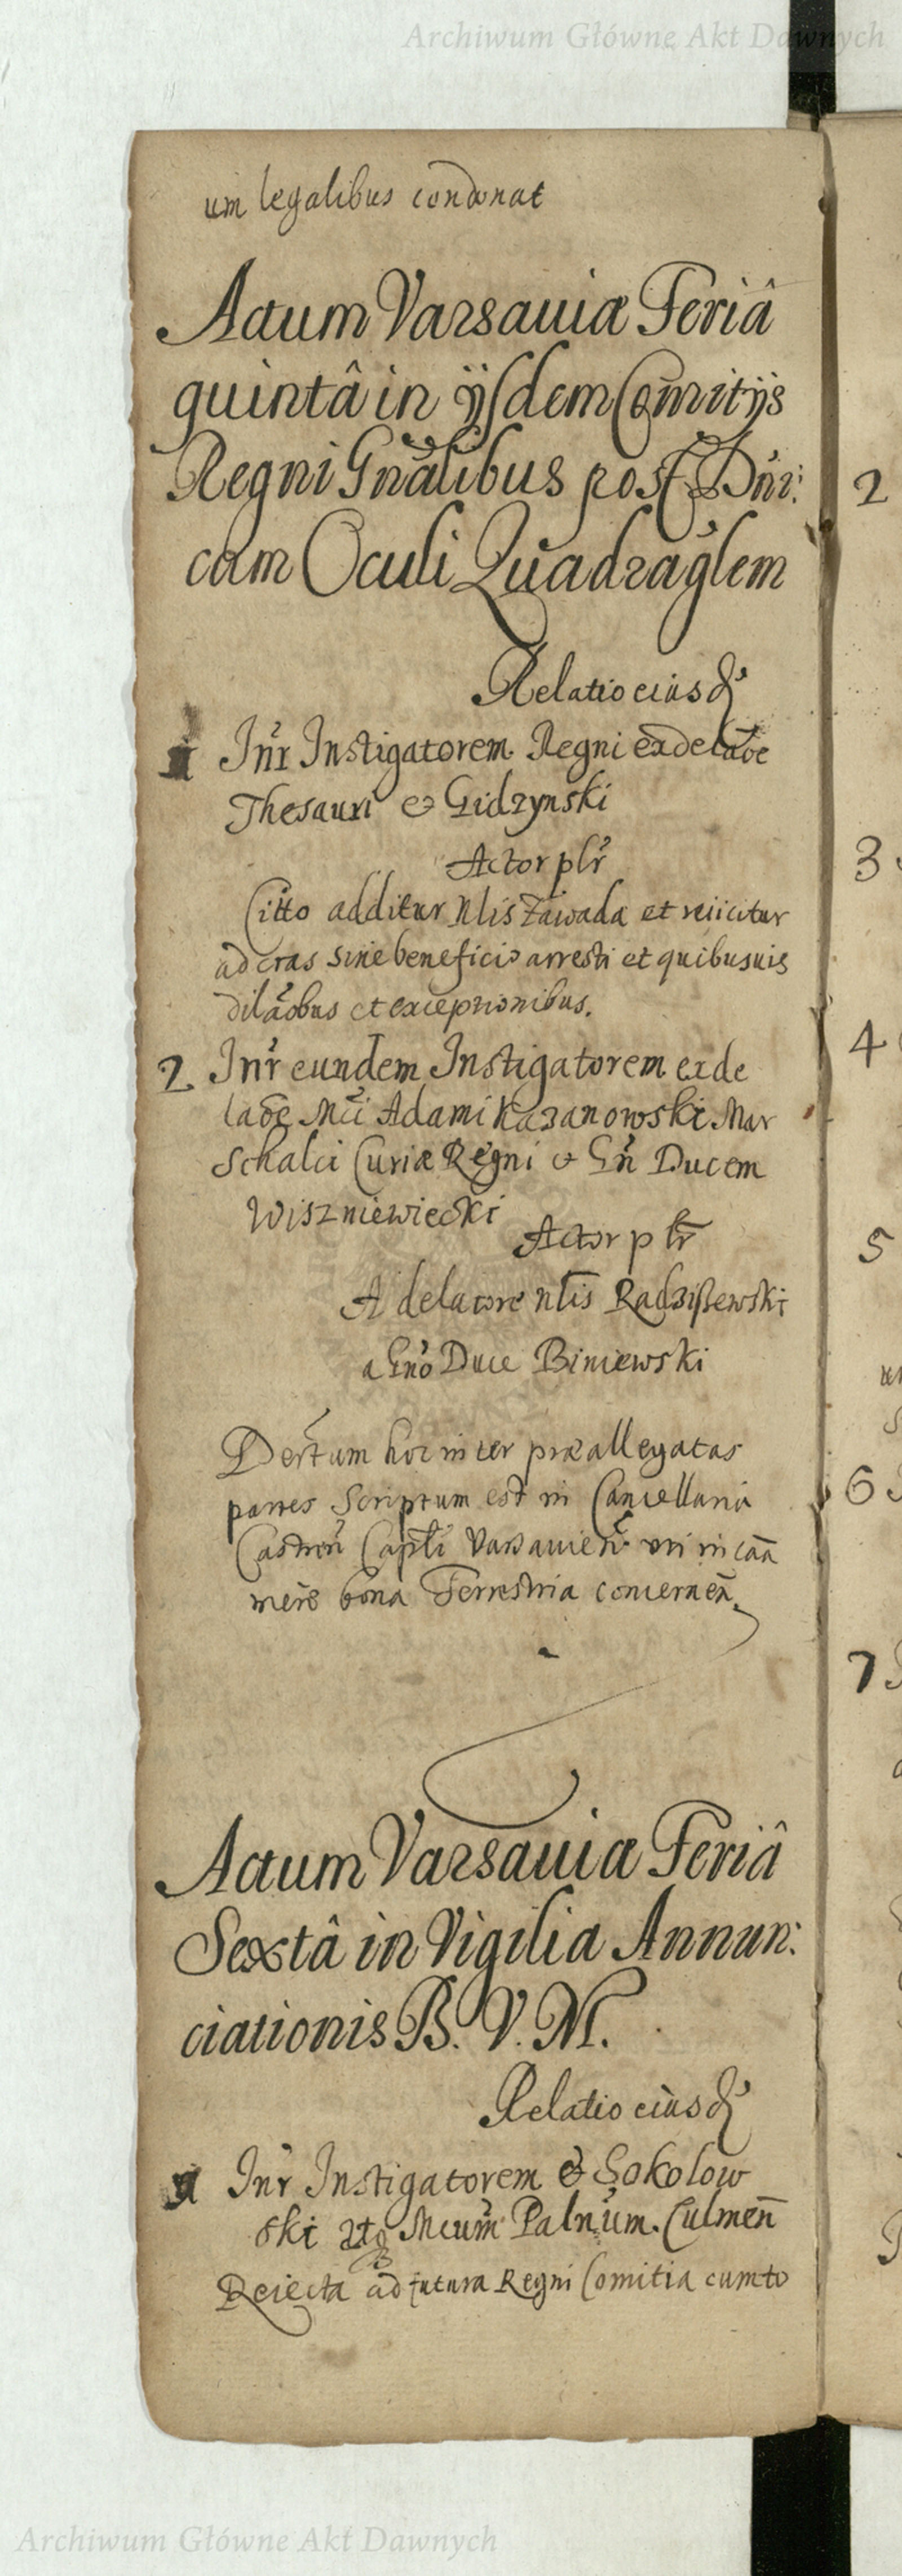 Archiwum Główne Akt Dawnych
um legalibus condonat
Actum Varsaviæ Feriâ
quintâ in ijsdem Comitijs
Regni Gnãlibus post Dni:
cam Oculi Quadraglem
Relatio eiusd
1 Inr Instigatorem Regni ex delaõe
Thesauri et Gidzynski
Actor plr
Citto additur Nlis Zawada et reiicitur
ad cras sine beneficio arresti et quibusuis
dilaõbus et exceptionibus.
2 Inr eundem Instigatorem ex de
laõe Mci Adami Kazanowski Mar
schalci Curiæ Regni et Gn Ducem
Wiszniewiecki
Actor p lr
A delatore Nlis Radziszewski
a Gno Duce Biniewski
Dertum hoc inter præallegatas
partes Scriptum est in Cancellaria
Castren Captli Varsavien uti in caã
mere bona Terrestria concernen
Actum Varsaviæ Feriâ
Sextâ in Vigilia Annun:
ciationis B. V. M.
Relatio eiusd
1 Inr Instigatorem et Sokolow
ski atq Mcum Palnum Culmen
Reiecta ad futura Regni Comitia cum to
2
3
4
5
6
7
Archiwum Główne Akt Dawnych